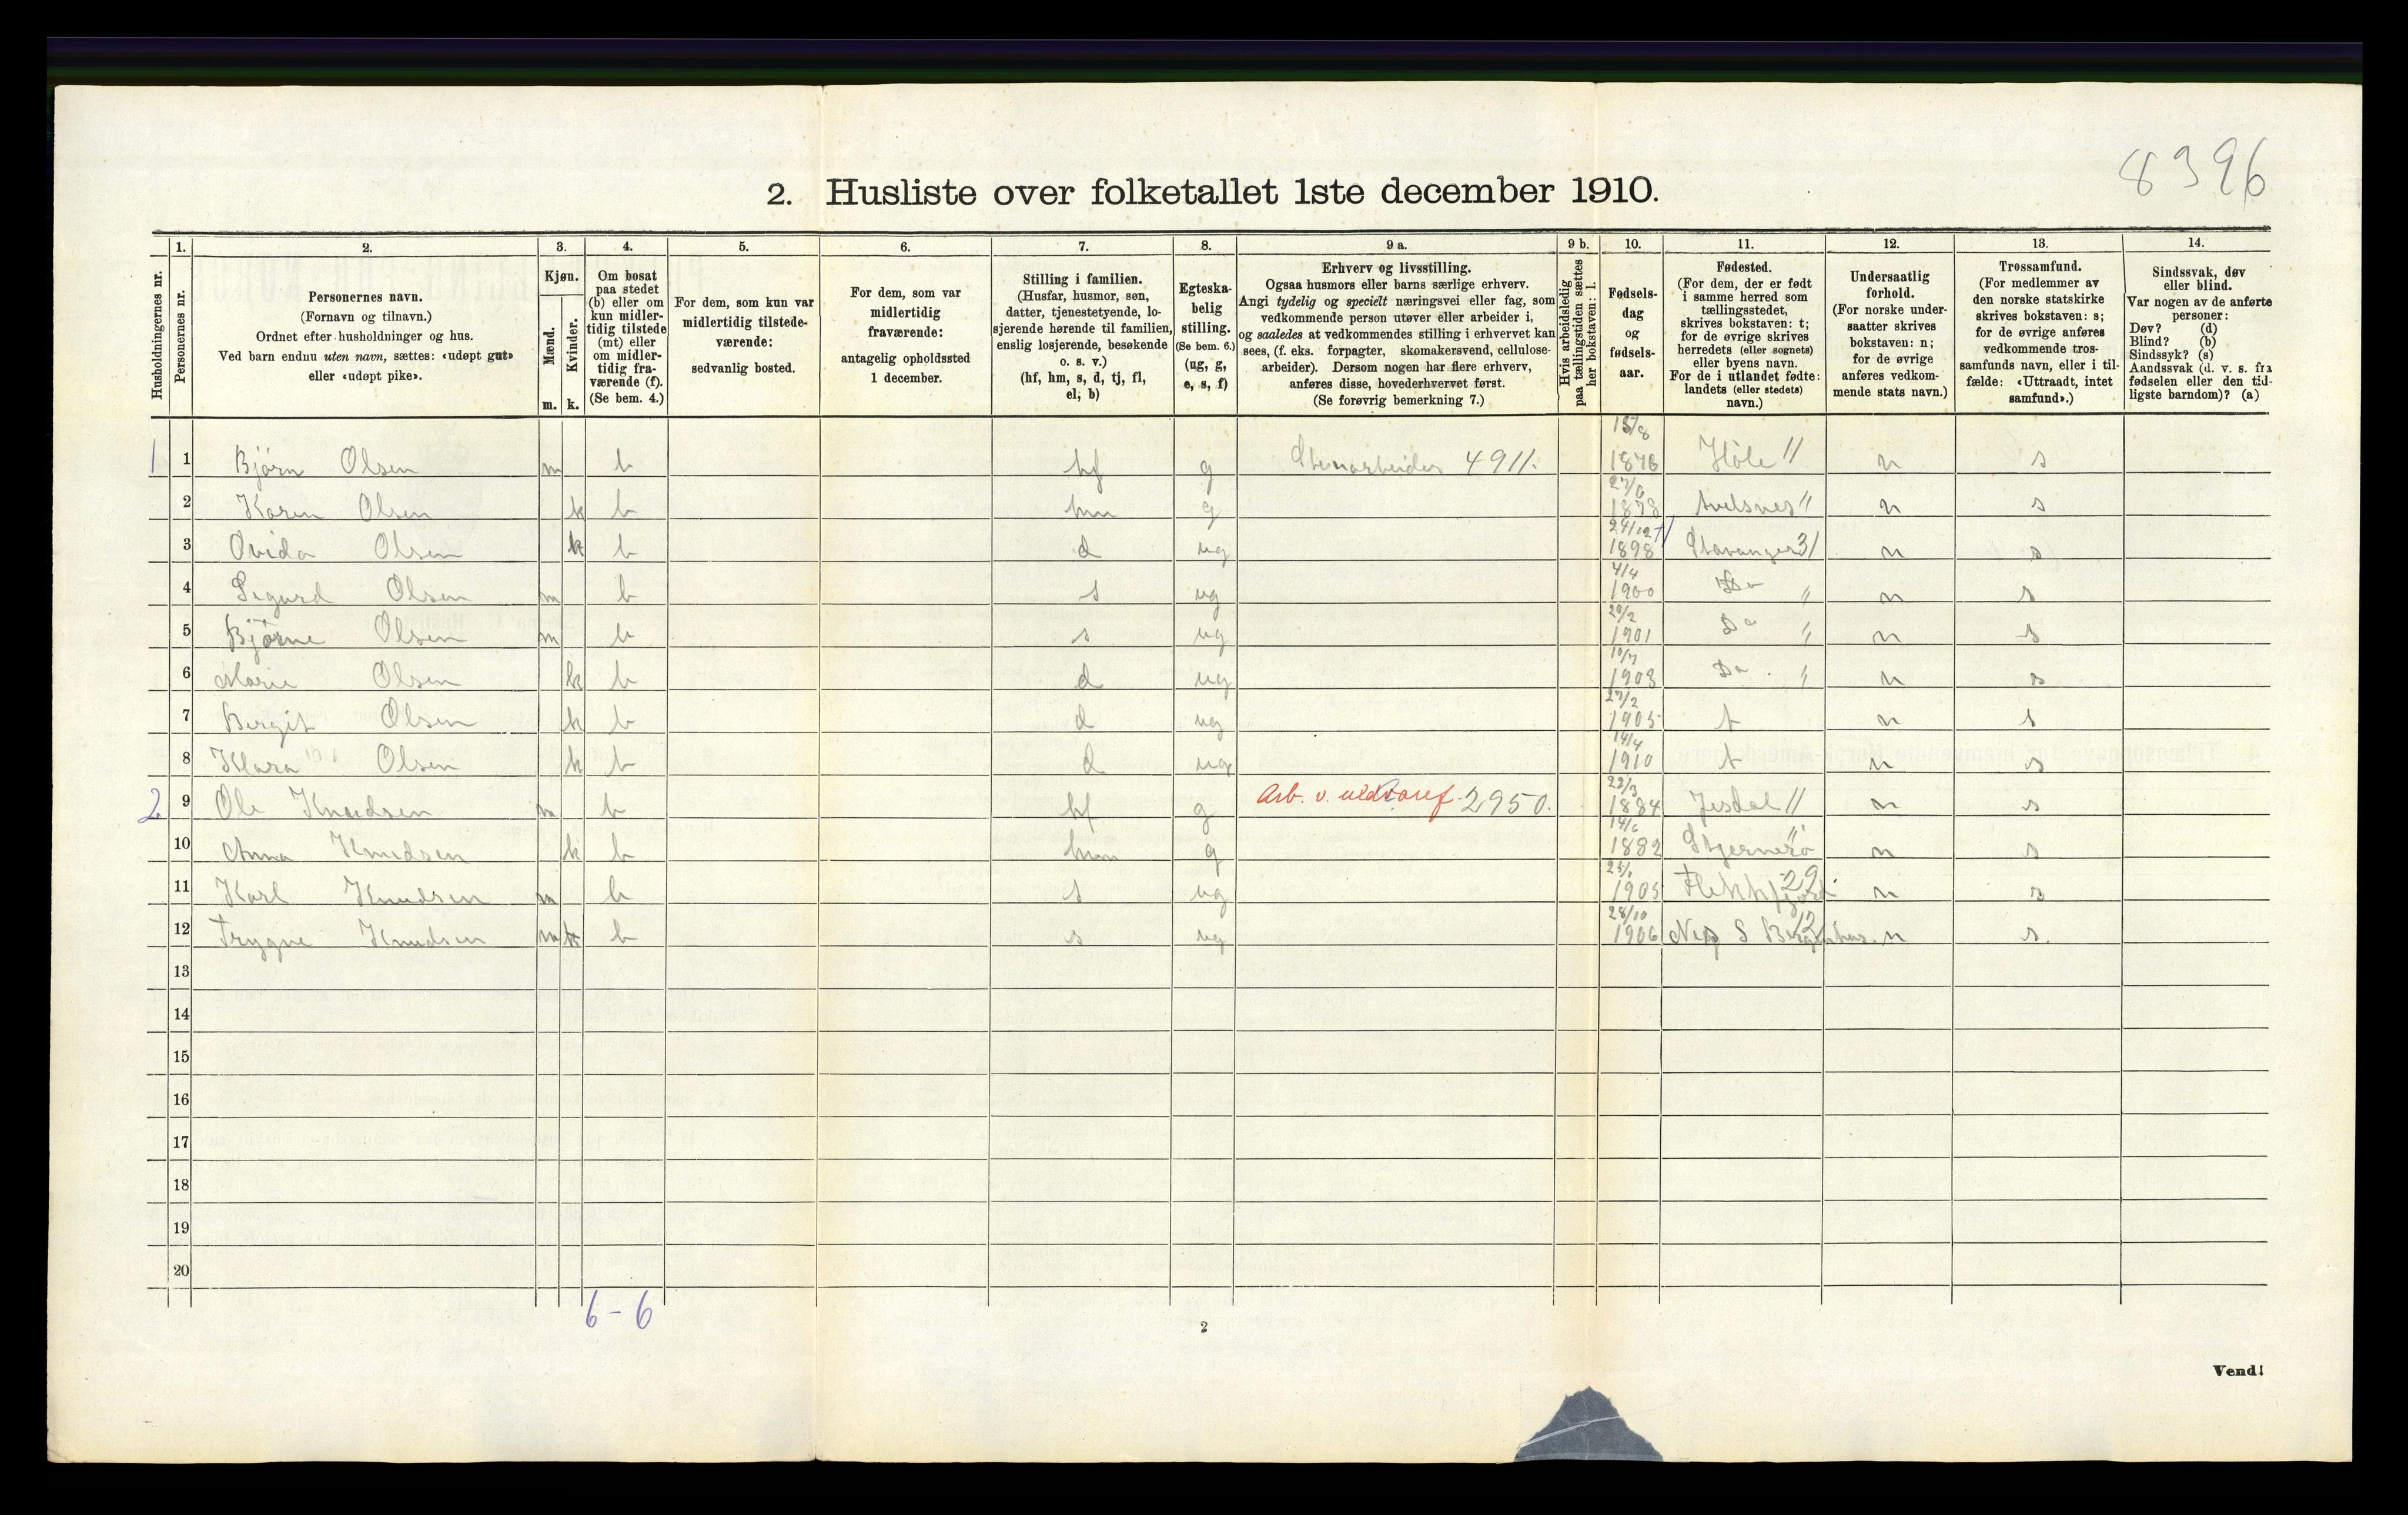 8396
2. Husliste over folketallet 1ste december 1910.
Husholdningernes nr.
1. Personernes nr.
2. Personernes navn. (Fornavn og tilnavn.) Ordnet efter husholdninger og hus. Ved barn endnu uten navn, sættes: «udøpt gut» eller «udøpt pike».
3. Kjøn. Mænd. m. Kvinder. k.
4. Om bosat paa stedet (b) eller om kun midlertidig tilstede (mt) eller om midlertidig fraværende (f). (Se bem. 4.)
5. For dem, som kun var midlertidig tilstedeværende: sedvanlig bosted.
6. For dem, som var midlertidig fraværende: antagelig opholdssted 1 december.
7. Stilling i familien. (Husfar, husmor, søn, datter, tjenestetyende, losjerende hørende til familien, enslig losjerende, besøkende o. s. v.) (hf, hm, s, d, tj, fl, el, b)
8. Egteskabelig stilling. (Se bem. 6.) (ug, g, e, s, f)
9 a. Erhverv og livsstilling. Ogsaa husmors eller barns særlige erhverv. Angi tydelig og specielt næringsvei eller fag, som vedkommende person utøver eller arbeider i, og saaledes at vedkommendes stilling i erhvervet kan sees, (f. eks. forpagter, skomakersvend, cellulosearbeider). Dersom nogen har flere erhverv, anføres disse, hovederhvervet først. (Se forøvrig bemerkning 7.)
9 b. Hvis arbeidsledig paa tællingstiden sættes her bokstaven: l.
10. Fødselsdag og fødselsaar.
11. Fødested. (For dem, der er født i samme herred som tællingsstedet, skrives bokstaven: t; for de øvrige skrives herredets (eller sognets) eller byens navn. For de i utlandet fødte: landets (eller stedets) navn.)
12. Undersaatlig forhold. (For norske undersaatter skrives bokstaven: n; for de øvrige anføres vedkommende stats navn.)
13. Trossamfund. (For medlemmer av den norske statskirke skrives bokstaven: s; for de øvrige anføres vedkommende trossamfunds navn, eller i tilfælde: «Uttraadt, intet samfund».)
14. Sindssvak, døv eller blind. Var nogen av de anførte personer: Døv? (d) Blind? (b) Sindssyk? (s) Aandssvak (d. v. s. fra fødselen eller den tidligste barndom)? (a)
1 1 Bjørn Olsen m b hf g Stenarbeider 4911. 1876 Høle 11 n s
2 Karen Olsen k b hm g 27/6 1878 11 n s
3 Ovida Olsen k b d ug 24/12 1898 Stavanger 31 n s
4 Sigurd Olsen m b s ug 4/4 1900 Do " n s
5 Bjarne Olsen m b s ug 20/2 1901 Do " n s
6 Marie Olsen k b d ug 10/7 1903 Do " n s
7 Bergit Olsen k b d ug 27/2 1905 t n s
8 Klara Olsen k b d ug 14/4 1910 t n s
2 9 Ole Knudsen m b hf g Arb. v. uldvaref. 2950. 1884 Jesdal 11 n s
10 Anna Knudsen k b hm g 14/6 1882 Stjernerø " n s
11 Karl Knudsen m b s ug 1905 Flekkfjord 29 n s
12 Trygve Knudsen m b s ug 28/10 1906 S Bergenhus 12 n s.
13
14
15
16
17
18
19
20
6-6
2
Vend!